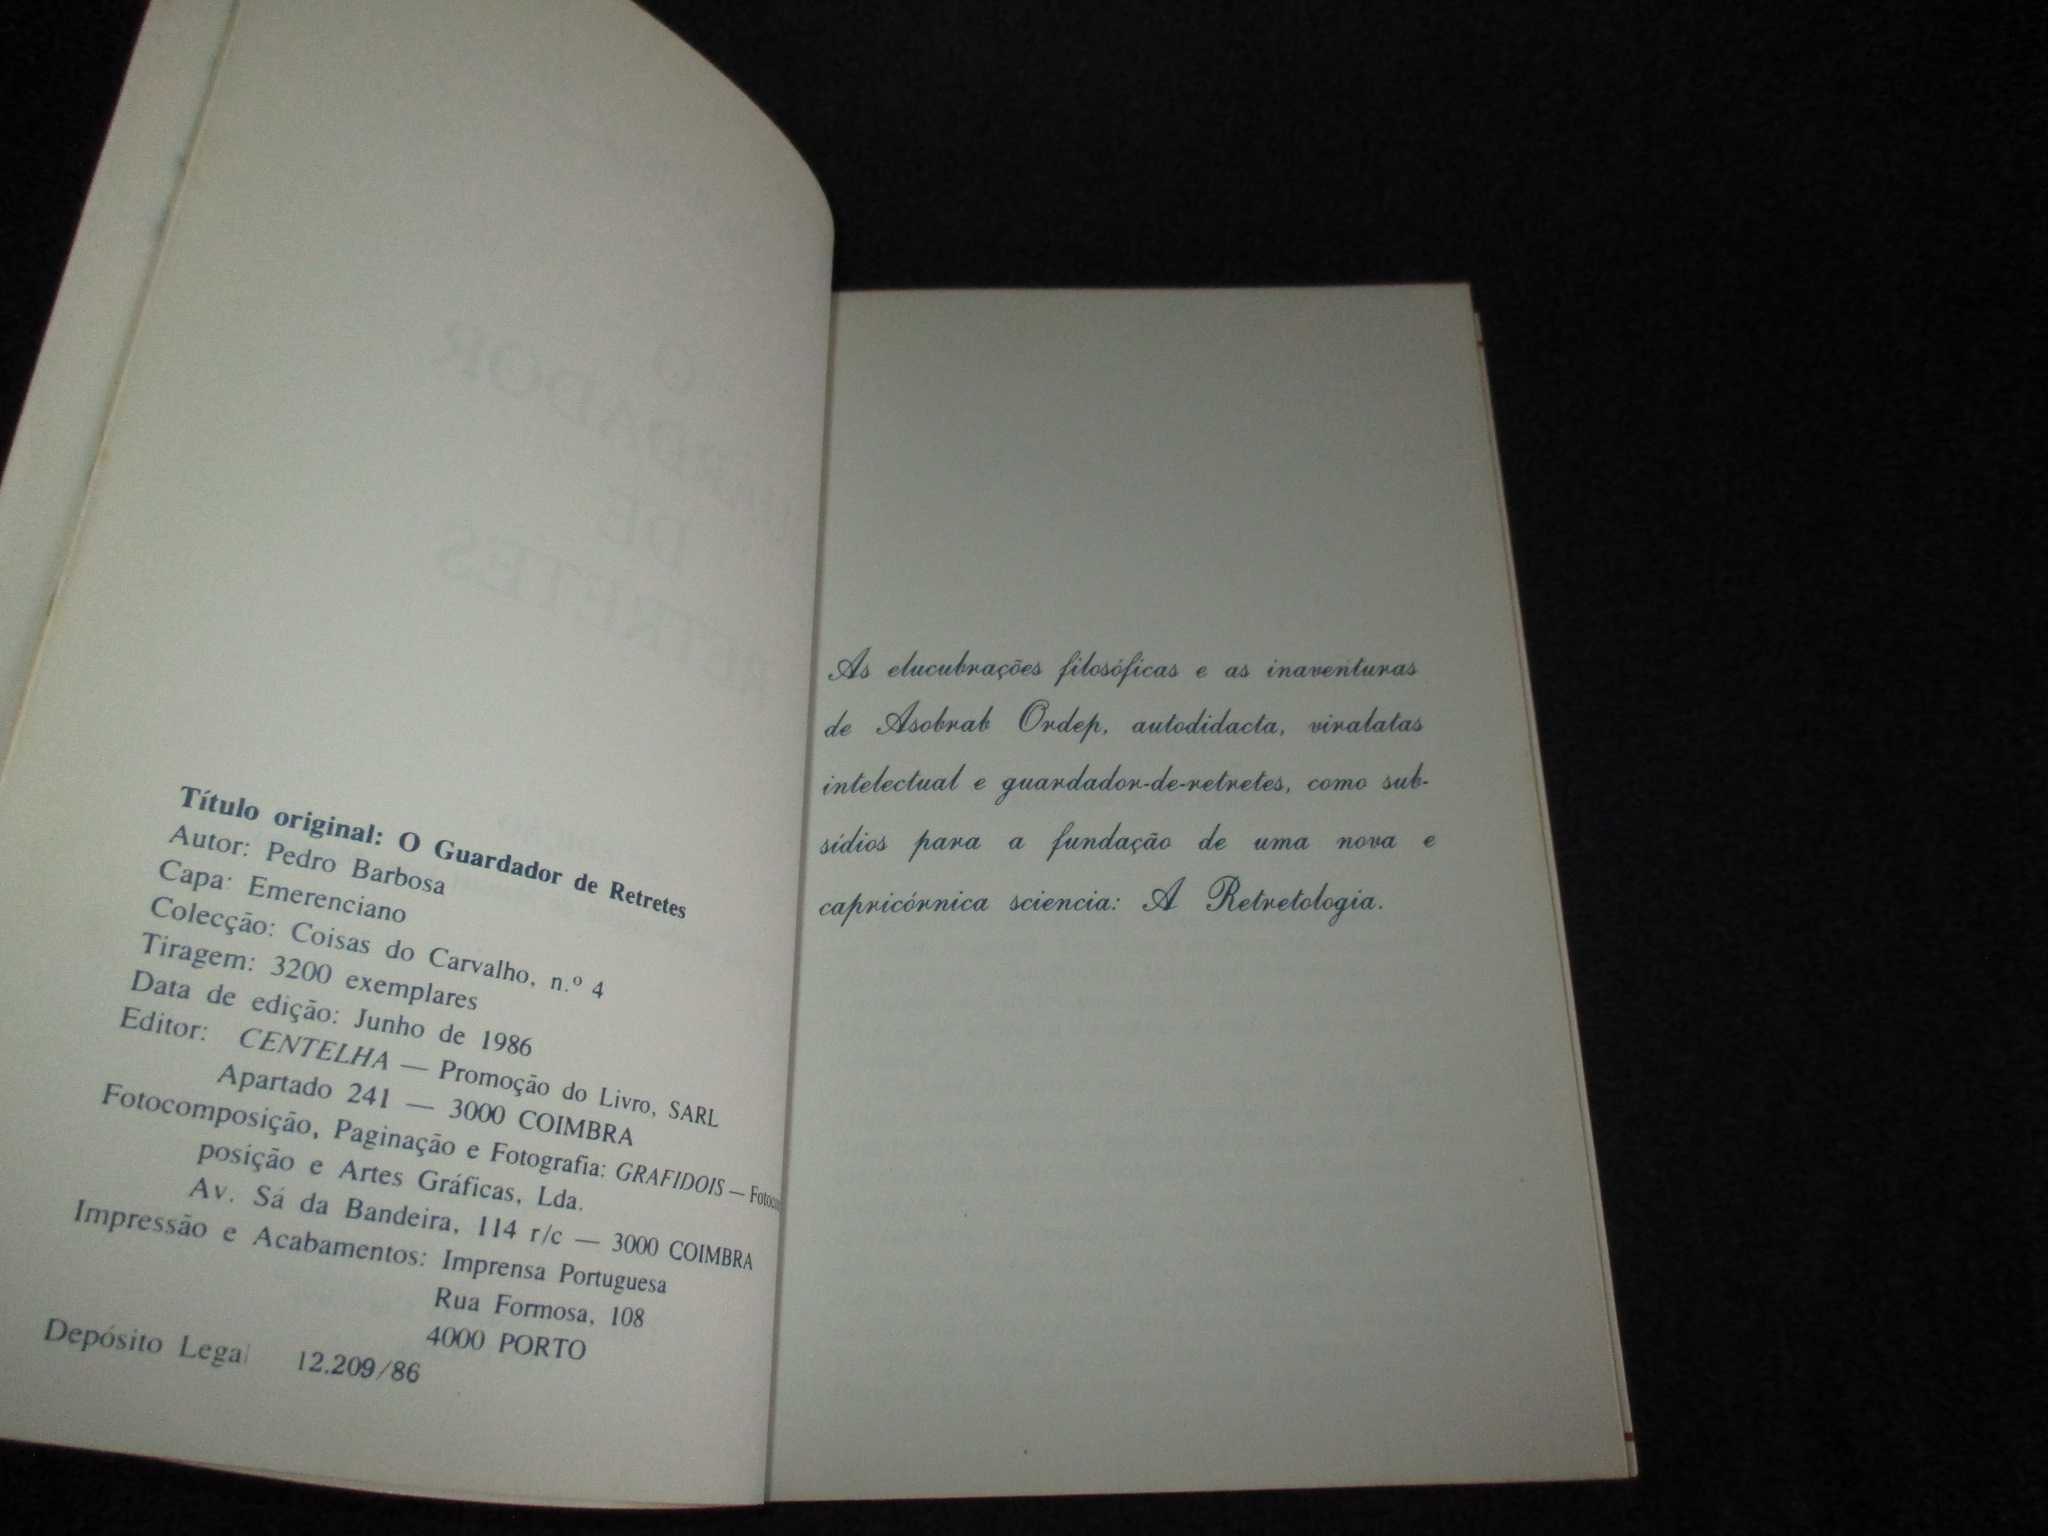 Título original: O Guardador de Retretes
Autor: Pedro Barbosa
Capa: Emerenciano
Colecção: Coisas do Carvalho, n.º 4
Tiragem: 3200 exemplares
Data de edição: Junho de 1986
Editor: CENTELHA — Promoção do Livro, SARL
Apartado 241 — 3000 COIMBRA
Fotocomposição, Paginação e Fotografia: GRAFIDOIS — Fotocom
posição e Artes Gráficas, Lda.
Av. Sá da Bandeira, 114 r/c — 3000 COIMBRA
Impressão e Acabamentos: Imprensa Portuguesa
Rua Formosa, 108
4000 PORTO
Depósito Legal 12.209/86
As elucubrações filosóficas e as inaventuras
de Asobrab Ordep, autodidacta, viralatas
intelectual e guardador-de-retretes, como sub-
sídios para a fundação de uma nova e
capricórnica sciencia: A Retretologia.